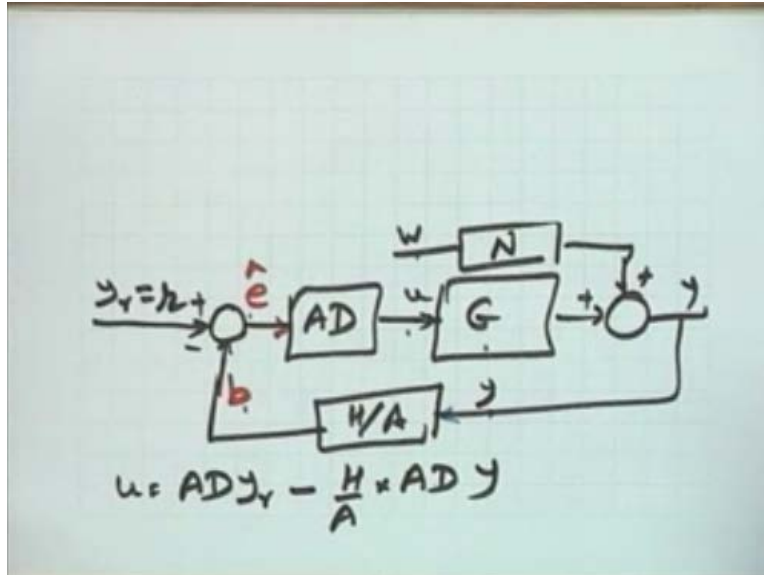 w N
+
y_r = r + ê AD u G + y
-
b H/A y
u = AD y_r - H/A × AD y